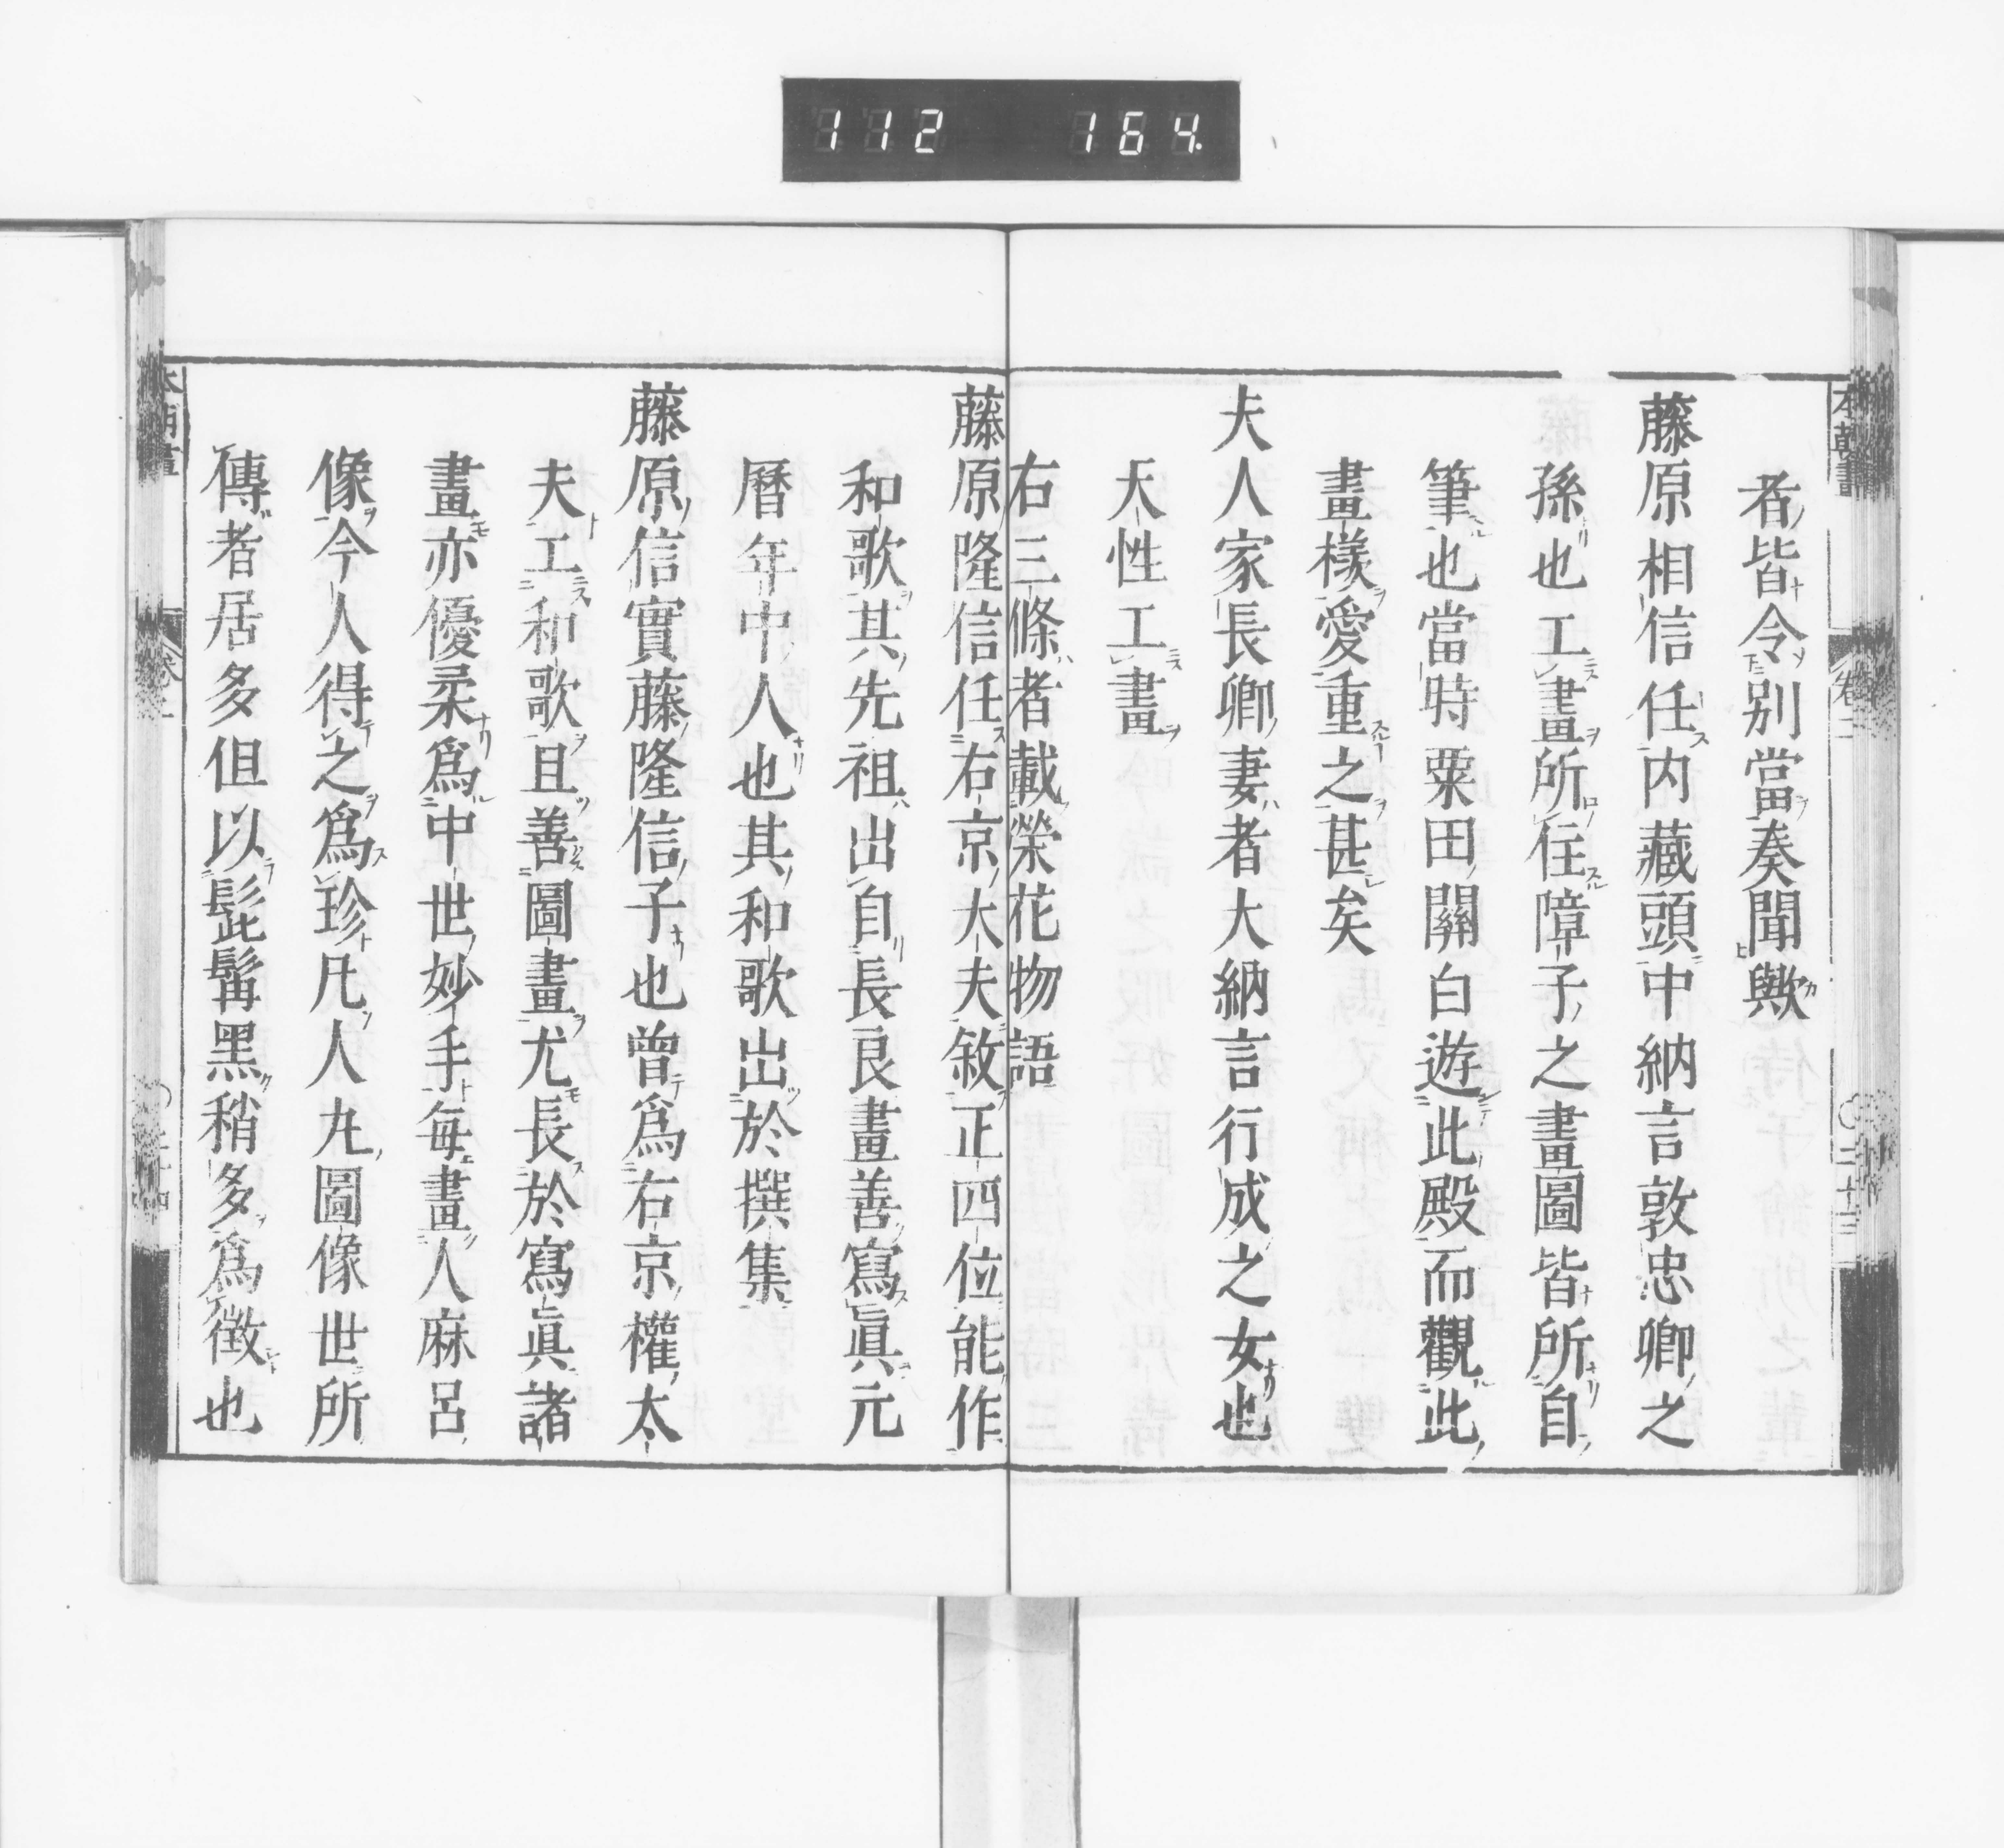 112 164.
者皆令別當奏聞歟
藤原相信任内藏頭中納言敦忠卿之
孫也工畫所住障子之畫圖皆所自
筆也當時粟田關白遊此殿而觀此
畫樣愛重之甚矣
夫人家長卿妻者大納言行成之女也
天性工畫
右三條者載榮花物語
藤原隆信任右京大夫敘正四位能作
和歌其先祖出自長良畫善寫眞元
曆年中人也其和歌出於撰集
藤原信實藤隆信子也曾爲右京權太
夫工和歌且善圖畫尤長於寫眞諸
畫亦優柔爲中世妙手每畫人麻呂
像今人得之爲珍凡人丸圖像世所
傳者居多但以髭髯黑稍多爲徵也